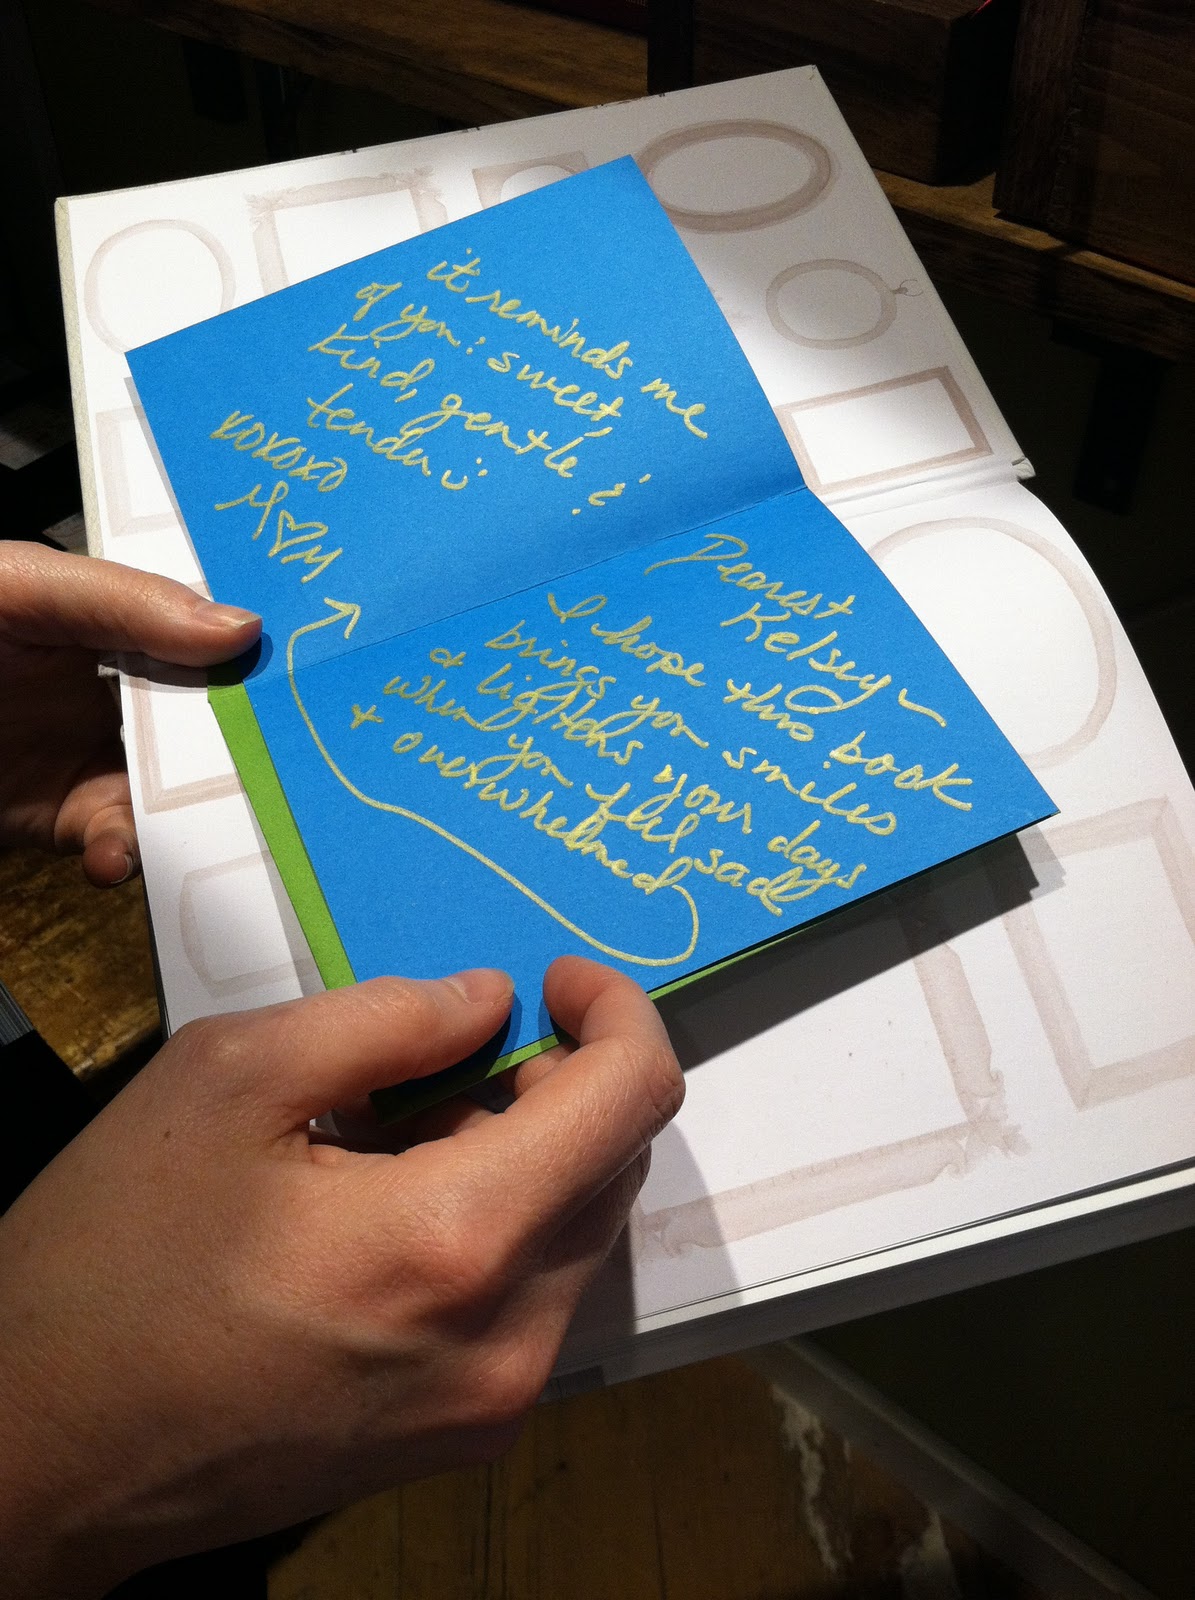 Dearest
Kelsey~
I hope this book
brings you smiles
& lightens your days
when you feel sad
+ overwhelmed
it reminds me
of you: sweet,
kind, gentle &
tender
xoxoxo
M♡M